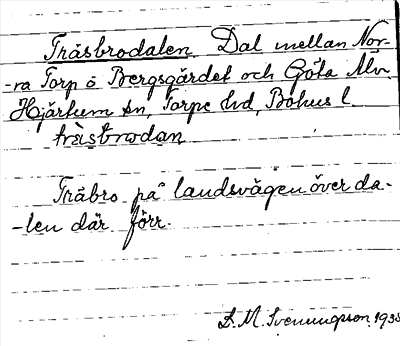 Träsbrodalen. Dal mellan Nor-
-ra Torp o Bergsgärdet och Göta Älv.
Hjärtum sn, Torpe hd, Bohus l.
träsbrodan
Träbro på landsvägen över da-
-len där förr.
L. M. Svenungsson 1938